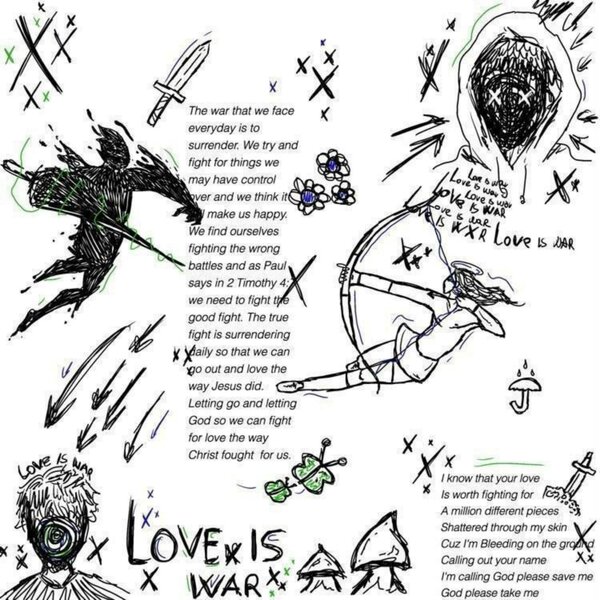 The war that we face
everyday is to
surrender. We try and
fight for things we
may have control
over and we think it
make us happy.
We find ourselves
fighting the wrong
battles and as Paul
says in 2 Timothy 4:
we need to fight the
good fight. The true
fight is surrendering
daily so that we can
go out and love the
way Jesus did.
Letting go and letting
God so we can fight
for love the way
Christ fought for us.
LOVE IS WAR
LOVE IS WAR
LOVE IS WAR
LOVE IS WAR
LOVE IS WAR
IS WXR LOVE IS WAR
LOVE IS WAR
LOVE IS
WAR
I know that your love
Is worth fighting for
A million different pieces
Shattered through my skin
Cuz I'm Bleeding on the ground
Calling out your name
I'm calling God please save me
God please take me